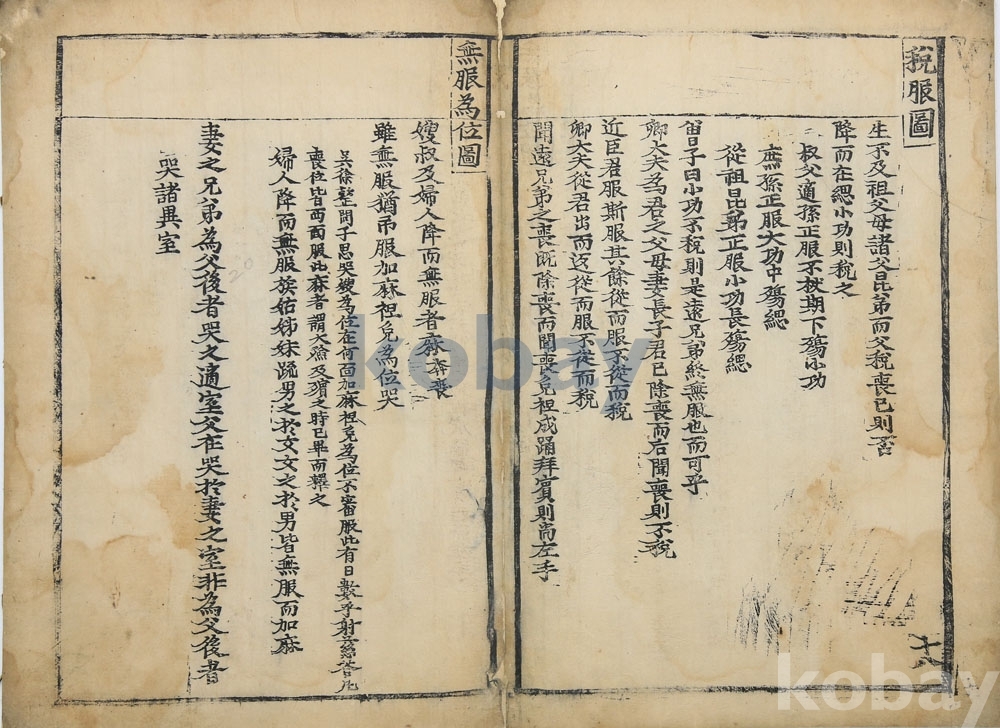 稅服圖
生不及祖父母諸父昆弟而父稅喪已則否
降而在緦小功則稅之
叔父適孫正服不杖期下殤小功
庶孫正服大功中殤緦
從祖昆弟正服小功長殤緦
曾子曰小功不稅則是遠兄弟終無服也而可乎
卿大夫為君之父母妻長子君已除喪而后聞喪則不稅
近臣君服斯服其餘從而服不從而稅
卿大夫從君出而返從而服不從而稅
聞遠兄弟之喪旣除喪而聞喪免袒成踊拜賓則尚左手
十八
無服為位圖
嫂叔及婦人降而無服者麻奔喪
雖無服猶吊服加麻袒免為位哭
吳徐整問子思哭嫂為位在何面加麻袒免為位不審服此有日數乎射慈答凡
喪位皆西面服此麻者謂大斂及殯之時已畢而釋之
婦人降而無服族姑姊妹
男之於女女之於男皆無服而加麻
妻之兄弟為父後者哭之適室父在哭於妻之室非為父後者
哭諸異室
20
kobay
kobay